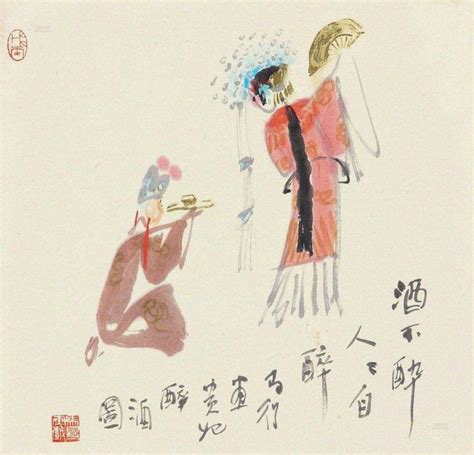 酒不醉
人人自
醉
马得
畫
贵妃
醉
酒
圖